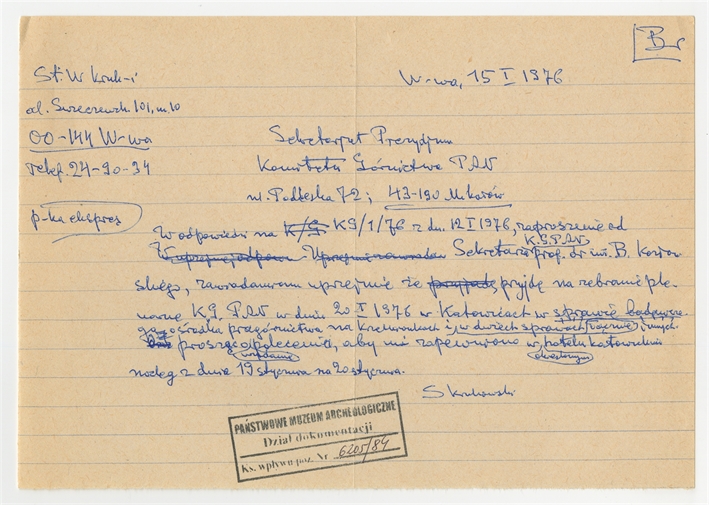 Br
St. W Kruk-i
W-wa, 15 I 1976
al. Świerczewsk 101, m. 10
00-144 W-wa
Telef. 24-90-34
Sekretarjat Prezydjum
Komitetu Górnictwa PAN
ul. Podleska 72; 43-190 Mikołów
p-ka ekspres
W odpowiedzi na K/G KG/1/76 z dn. 12 I 1976, zaproszenie od
K.G.PAN
Sekretarza prof. dr inż. B.
skiego, zawiadamiam uprzejmie że przyjadę przyjdę na zebranie ple-
narne K.G. PAN w dniu 20 I 1976 w Katowicach w sprawie badawcze-
go ośrodka pragórnictwa na Krzemionkach i, w dwóch sprawach łącznie innych.
proszę o polecenie, aby mi zapewniono w hotelu katowickim
wydanie
określonym
nocleg z dnia 19 stycznia na 20 stycznia.
S Krukowski
PAŃSTWOWE MUZEUM ARCHEOLOGICZNE
Dział dokumentacji
Ks. wpływu poz. Nr 6205/84